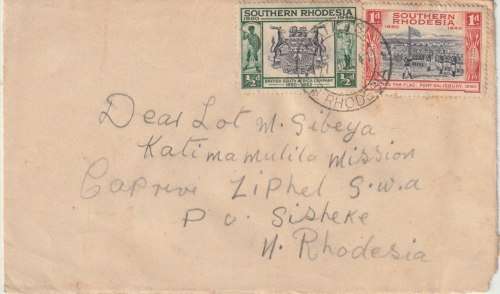 SOUTHERN RHODESIA
1890 1940
½d ½d
BRITISH SOUTH AFRICA COMPANY
1890-1923
1d SOUTHERN RHODESIA 1d
1890 1940
FORT SALISBURY, 1890
RHODESIA
Dear Lot M. Sibeya
Katimamulilo Mission
Caprivi Ziphel S.W.a
P O. Sisheke
N. Rhodesia